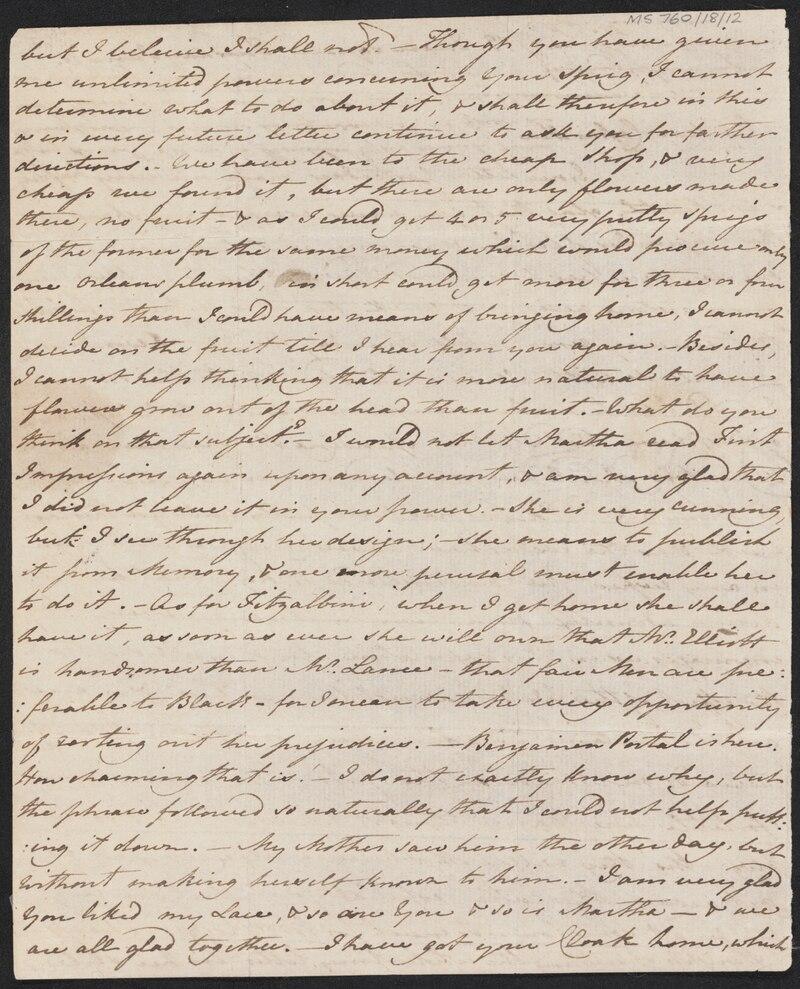 MS 760/18/12
but I beleive I shall not. – Though you have given
me unlimited powers concerning Your Sprig, I cannot
determine what to do about it, & shall therefore in this
& in every future letter continue to ask you for farther
directions. – We have been to the cheap Shop, & very
cheap we found it, but there are only flowers made
there, no fruit – & as I could get 4 or 5 very pretty sprigs
of the former for the same money which would procure only
one Orleans plumb, in short could get more for three or four
Shillings than I could have means of bringing home, I cannot
decide on the fruit till I hear from you again. – Besides,
I cannot help thinking that it is more natural to have
flowers grow out of the head than fruit. – What do you
think on that subject? – I would not let Martha read First
Impressions again upon any account, & am very glad that
I did not leave it in your power. – She is very cunning,
but I see through her design; – she means to publish
it from Memory, & one more perusal must enable her
to do it. – As for Fitzalbini, when I get home she shall
have it, as soon as ever she will own that Mr. Elliott
is handsomer than Mr. Lance – that fair Men are pre:
:ferable to Black – for I mean to take every opportunity
of rooting out her prejudices. – Benjamin Portal is here.
How charming that is! – I do not exactly know why, but
the phrase followed so naturally that I could not help putt:
:ing it down. – My Mother saw him the other day, but
without making herself known to him. – I am very glad
You liked my Lace, & so are You & so is Martha – & we
are all glad together. – I have got your Cloak home, which